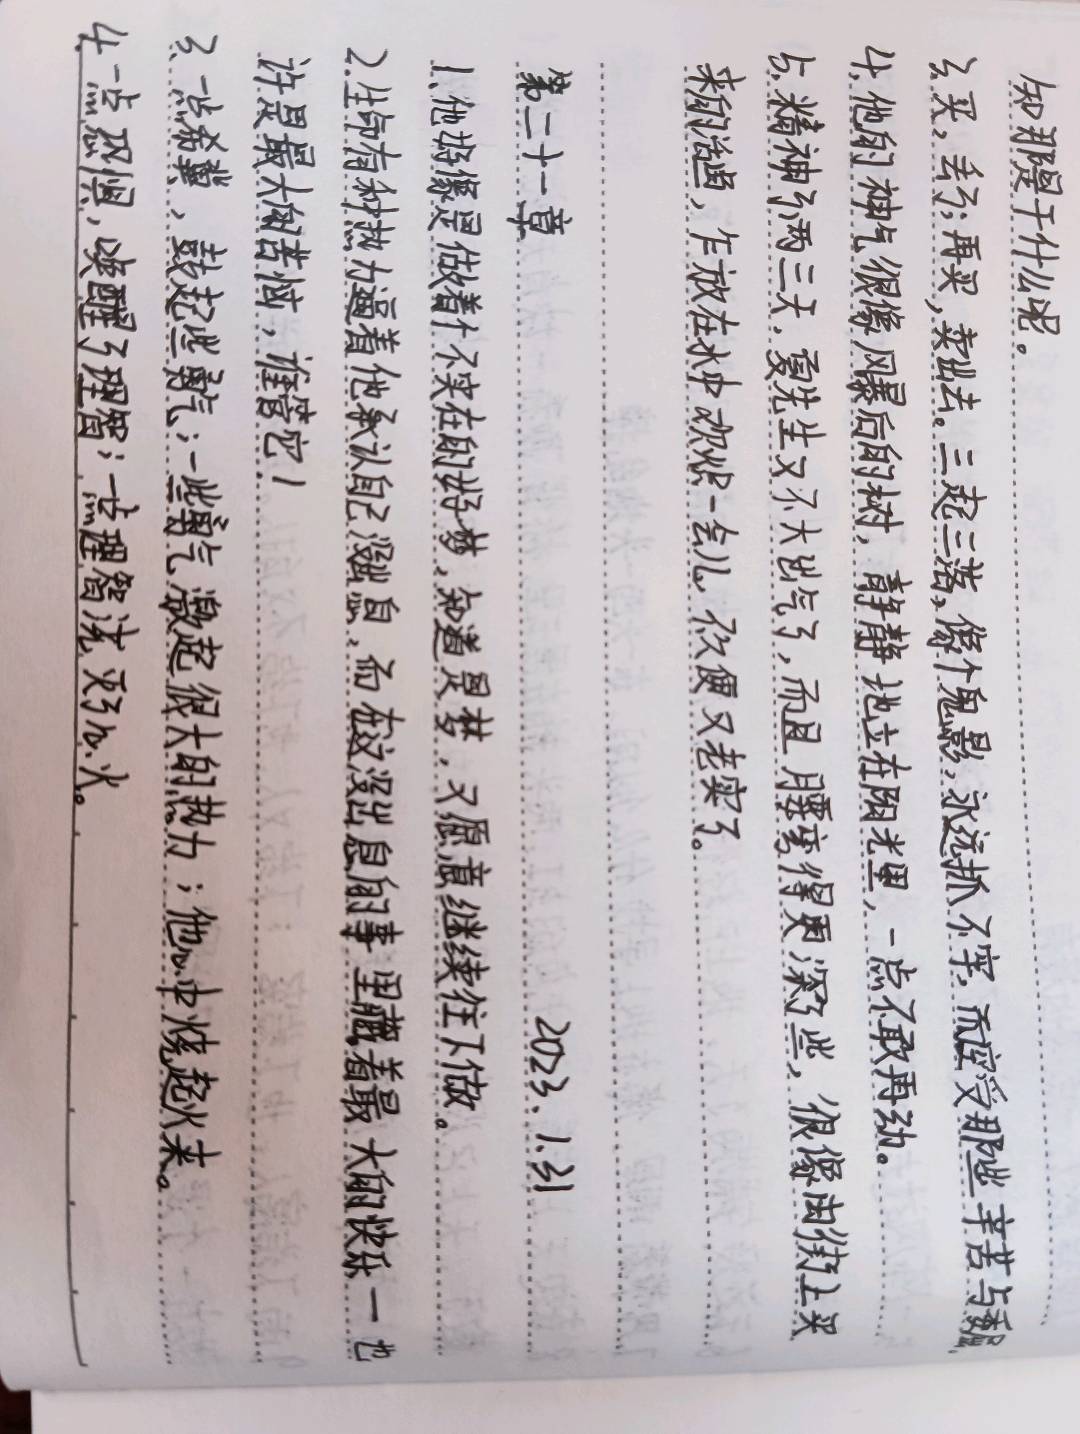 知那是干什么呢。
3.买,丢了;再买,卖出去。三起三落,像个鬼影,永远抓不牢,而空受那些辛苦与委屈
4.他的神气很像风暴后的树,静静地立在阳光里,一点不敢再动。
5.精神了两三天,夏先生又不大出气了,而且腰弯得更深了些,很像由街上买
来的活鱼,乍放在水中欢炽一会儿,不久便又老实了。
第二十一章 2023.1.31
1.他好像是做着个不实在的好梦,知道是梦,又愿意继续往下做。
2.生命有种热力逼着他承认自己没出息,而在这没出息的事里藏着最大的快乐一也
许是最大的苦恼,谁管它!
3.一点希冀,鼓起些勇气;一些勇气激起很大的热力;他心中烧起火来。
4.一点恐惧,唤醒了理智;一点理智浇灭了心火。